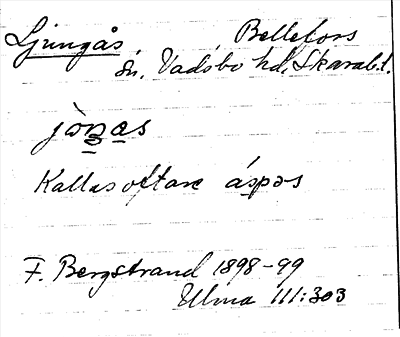 Ljungås, Bellefors
sn. Vadsbo hd. Skarab.l.
Kallas oftare áspəs
F. Bergstrand 1898-99
Ulma 111:303